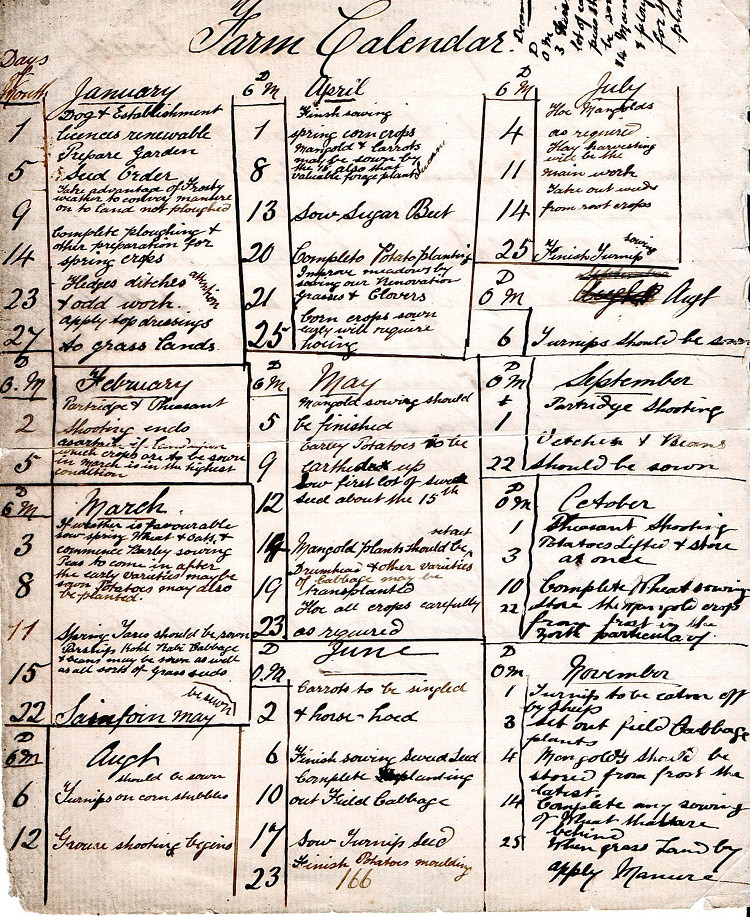 Farm Calendar.
Days
of
Month
January
Dog & Establishment
1 licences renewable
Prepare Garden
5 Seed Order
Take advantage of Frosty
weather to convey manure
9 on to land not ploughed
Complete ploughing &
other preparation for
14 spring crops
Hedges ditches attention
23 & odd work.
apply top dressings
27 to grass lands.
D
O. M
February
Partridge & Pheasant
2 Shooting ends
which crops are to be sown
5 in March is in the highest
condition
D
O M
March
If weather is favourable
sow spring Wheat & Oats, &
3 commence Barley sowing
Peas to come in after
the early varieties may be
8 sown Potatoes may also
be planted.
11 Spring Tares should be sown
Parsnip Kohl Rabi Cabbage
& Beans may be sown as well
15 as all sorts of Grass seeds
be sown
22 Sainfoin may
D
O M
Augh
should be sown
6 Turnips on corn stubbles
12 Grouse shooting begins
D
O M
April
Finish sowing
1 spring corn crops
Mangold & Carrots
may be sown by
8 the 16 also that
valuable forage plant Lucerne
13 Sow Sugar Beet
20 Complete Potato planting
Improve meadows by
sowing our Renovation
21 Grasses & Clovers
Corn crops sown
25 early will require
hoeing
D
O M
May
Mangold sowing should
5 be finished
Earley Potatoes to be
9 earthed up
Sow first lot of swede
12 seed about the 15th
set out
14 Mangold plants should be
Drumhead & other varieties
of Cabbage may be
19 transplanted
Hoe all crops carefully
23 as required
D
O M
June
Carrots to be singled
2 & horse-hoed
6 Finish sowing Swede Seed
Complete planting
10 out Field Cabbage
17 Sow Turnip Seed
Finish Potatoes moulding
23 166
D
O M
July
Hoe Mangolds
4 as required
Hay harvesting
will be the
11 main work
Take out weeds
14 from root crops
sowing
25 Finish Turnip
D
O M
Augt
6 Turnips should be sown
D
O M
September
1 Partridge Shooting
Vetches & Beans
22 should be sown
D
O M
October
1 Pheasant Shooting
Potatoes Lifted & store
3 at once
10 Complete Wheat sowing
22 Store the Mangold crop
from frost in the
North particularly.
D
O M
November
1 Turnip to be eaten off
by sheep
3 Set out field Cabbage
plants
4 Mangolds should be
stored from frost the
latest.
14 Complete any sowing
of Wheat that are
behind
25 When grass Land by
apply Manure